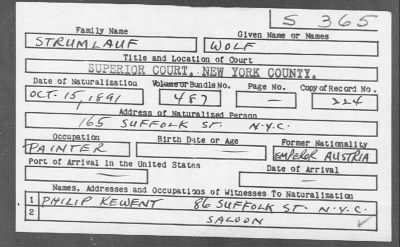 S 365
Family Name Given Name or Names
STRUMLAUF WOLF
Title and Location of Court
SUPERIOR COURT, NEW YORK COUNTY.
Date of Naturalization Volume or Bundle No. Page No. Copy of Record No.
OCT. 15, 1891 487 — 224
Address of Naturalized Person
165 SUFFOLK ST. N.Y.C.
Occupation Birth Date or Age Former Nationality
PAINTER — EMPEROR AUSTRIA
Port of Arrival in the United States Date of Arrival
— —
Names, Addresses and Occupations of Witnesses To Naturalization
1 PHILIP KEWENT 86 SUFFOLK ST. N.Y.C.
2 SALOON